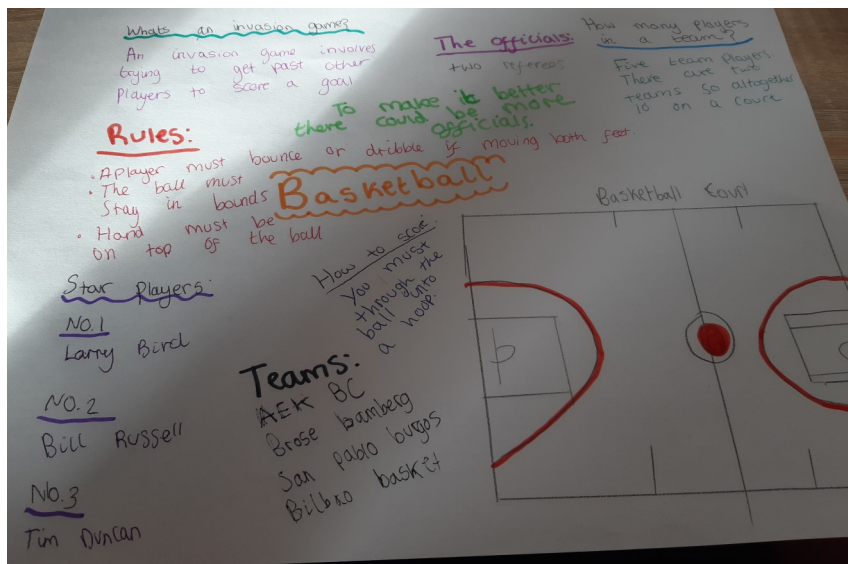 Whats an invasion game?
An invasion game involves
trying to get past other
Players to score a goal
The officials:
two referees
How many players
in a team?
Five team players
There are two
teams so altogether
10 on a court
To make it better
there could be more
officials.
Rules:
• A player must bounce or dribble if moving both feet.
• The ball must
Stay in bounds
• Hand must be
on top of the ball
Basketball
How to score:
You must
through the
ball into
a hoop.
Basketball Court
Star Players:
No.1
Larry Bird
No.2
Bill Russell
No.3
Tim Duncan
Teams:
AEK BC
Brose bamberg
San pablo burgos
Bilbao basket